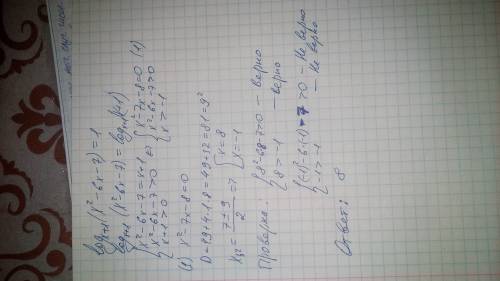 log_{x+1}(x²-6x-7)=1
log_{x+1}(x²-6x-7)=log_{x+1}(x+1)
{x²-6x-7=x+1 {x²-7x-8=0 (1)
{x²-6x-7>0 <=> {x²-6x-7>0
{x+1>0 {x>-1
(1) x²-7x-8=0
D=49+4·1·8=49+32=81=9²
x₁,₂=(7±9)/2=7 [x=8
[x=-1
Проверка: {8²-6·8-7>0 - верно
{8>-1 - верно
{(-1)²-6·(-1)-7>0 - Не верно
{-1>-1 - Не верно
Ответ: 8